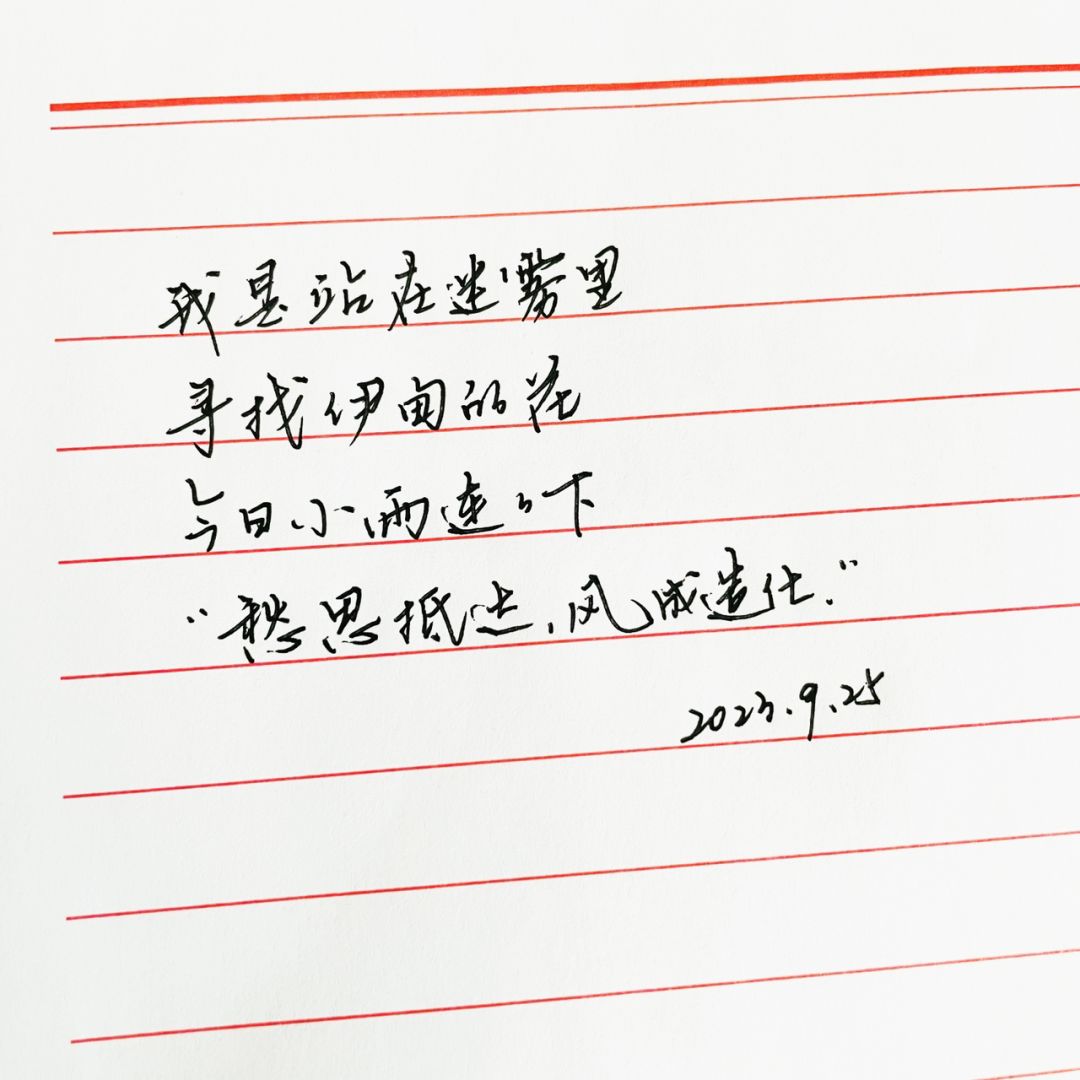 我是站在迷雾里
寻找伊甸的花
今日小雨连连下
“愁思抵达,风成造仕.”
2023.9.25